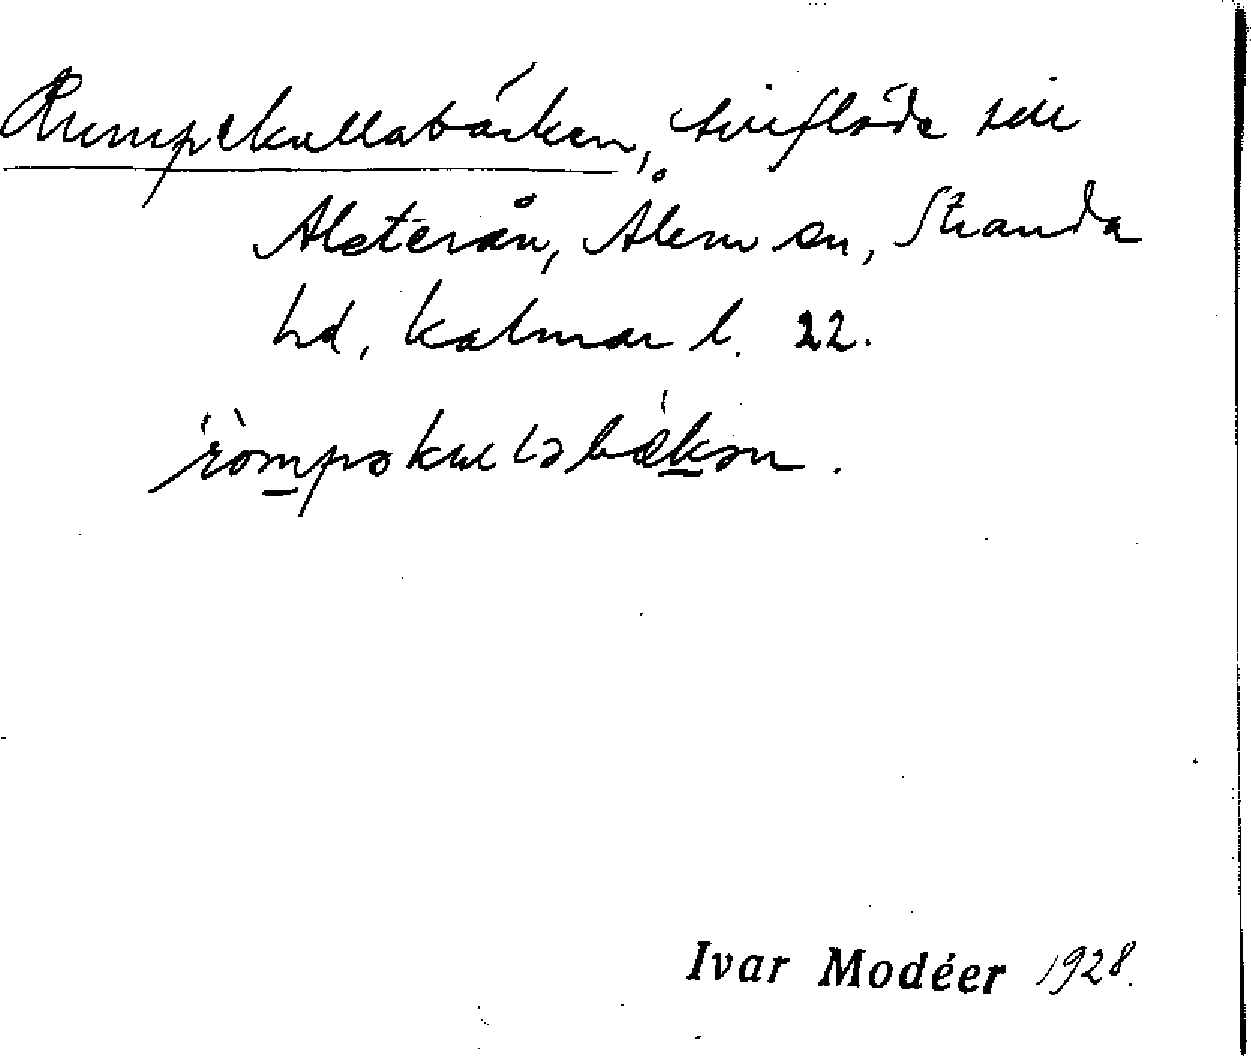 Rumpekullabäcken, tillflöde till
Alsterån, Ålem sn, Stranda
hd, Kalmar l. 22.
ròmpəkulabǽkən.
Ivar Modéer 1928.